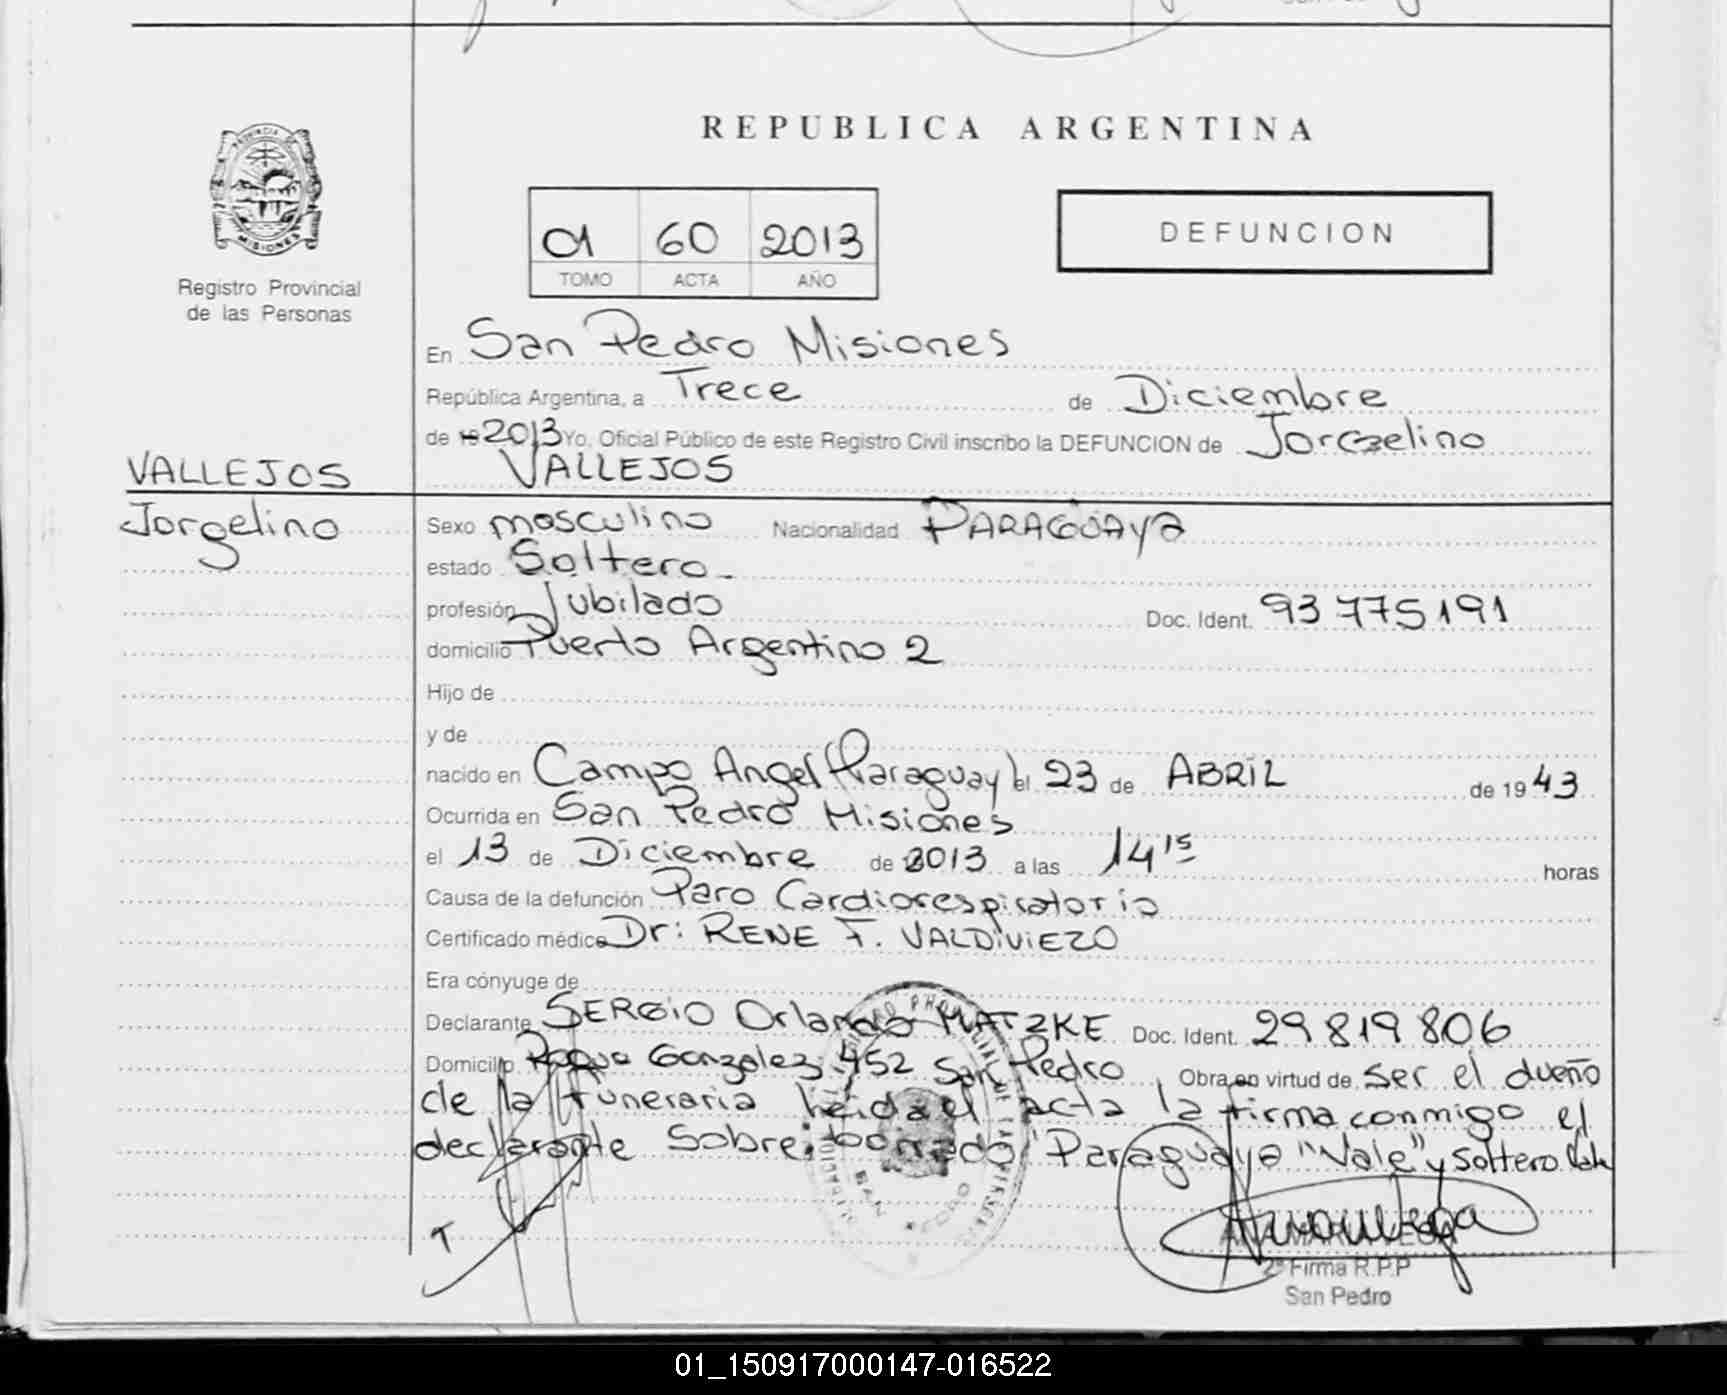 PROVINCIA DE
MISIONES
Registro Provincial
de las Personas
REPUBLICA ARGENTINA
01 60 2013
TOMO ACTA AÑO
DEFUNCION
En San Pedro Misiones
República Argentina, a Trece de Diciembre
de 19 2013 Yo, Oficial Público de este Registro Civil inscribo la DEFUNCION de Jorgelino
VALLEJOS
VALLEJOS
Jorgelino
Sexo masculino Nacionalidad PARAGUAYA
estado Soltero.
profesión Jubilado Doc. Ident. 93775191
domicilio Puerto Argentino 2
Hijo de
y de
nacido en Campo Angel (Paraguay) el 23 de ABRIL de 1943
Ocurrida en San Pedro Misiones
el 13 de Diciembre de 2013 a las 14 15 horas
Causa de la defunción Paro Cardiorespiratorio
Certificado médico Dr: RENE F. VALDIVIEZO
Era cónyuge de
Declarante SERGIO Orlando MATZKE Doc. Ident. 29819806
Domicilio Roque Gonzalez 452 San Pedro, Obra en virtud de ser el dueño
de la funeraria leida el acta la firma conmigo el
declarante Sobre borrado "Paraguaya "Vale" y Soltero. Vale
2ª Firma R.P.P
San Pedro
01_150917000147-016522